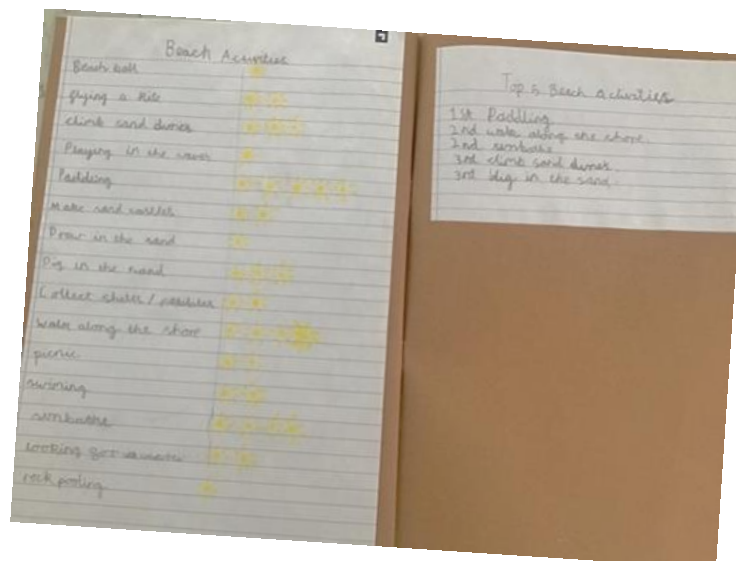 Beach Activities
Beach ball
flying a kite
climb sand dunes
Playing in the waves
Paddling
Make sand castles
Draw in the sand
Dig in the sand
Collect shells / pebbles
walk along the shore
picnic
swiming
sunbathe
looking for
rock pooling
Top 5 Beach activities
1st Paddling
2nd walk along the shore.
2nd sunbathe
3rd climb sand dunes.
3rd dig in the sand.